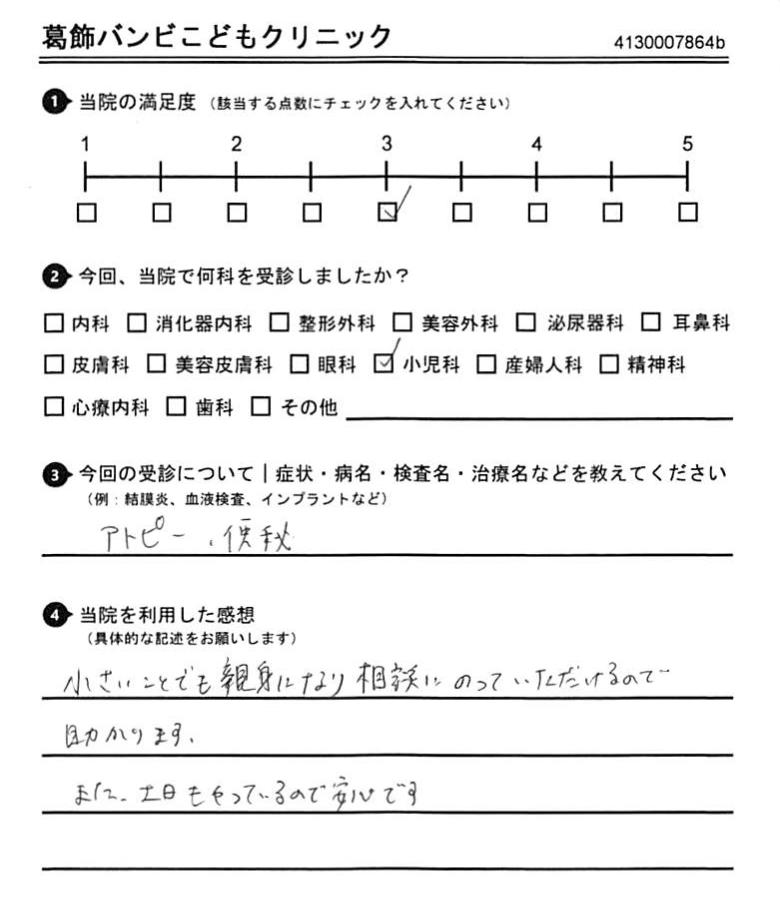 葛飾バンビこどもクリニック 4130007864b
1 当院の満足度（該当する点数にチェックを入れてください）
1 2 3 4 5
2 今回、当院で何科を受診しましたか？
内科 消化器内科 整形外科 美容外科 泌尿器科 耳鼻科
皮膚科 美容皮膚科 眼科 小児科 産婦人科 精神科
心療内科 歯科 その他
3 今回の受診について｜症状・病名・検査名・治療名などを教えてください
（例：結膜炎、血液検査、インプラントなど）
アトピー、便秘
4 当院を利用した感想
（具体的な記述をお願いします）
小さいことでも親身になり相談にのっていただけるので
助かります、
また、土日もやっているので安心です